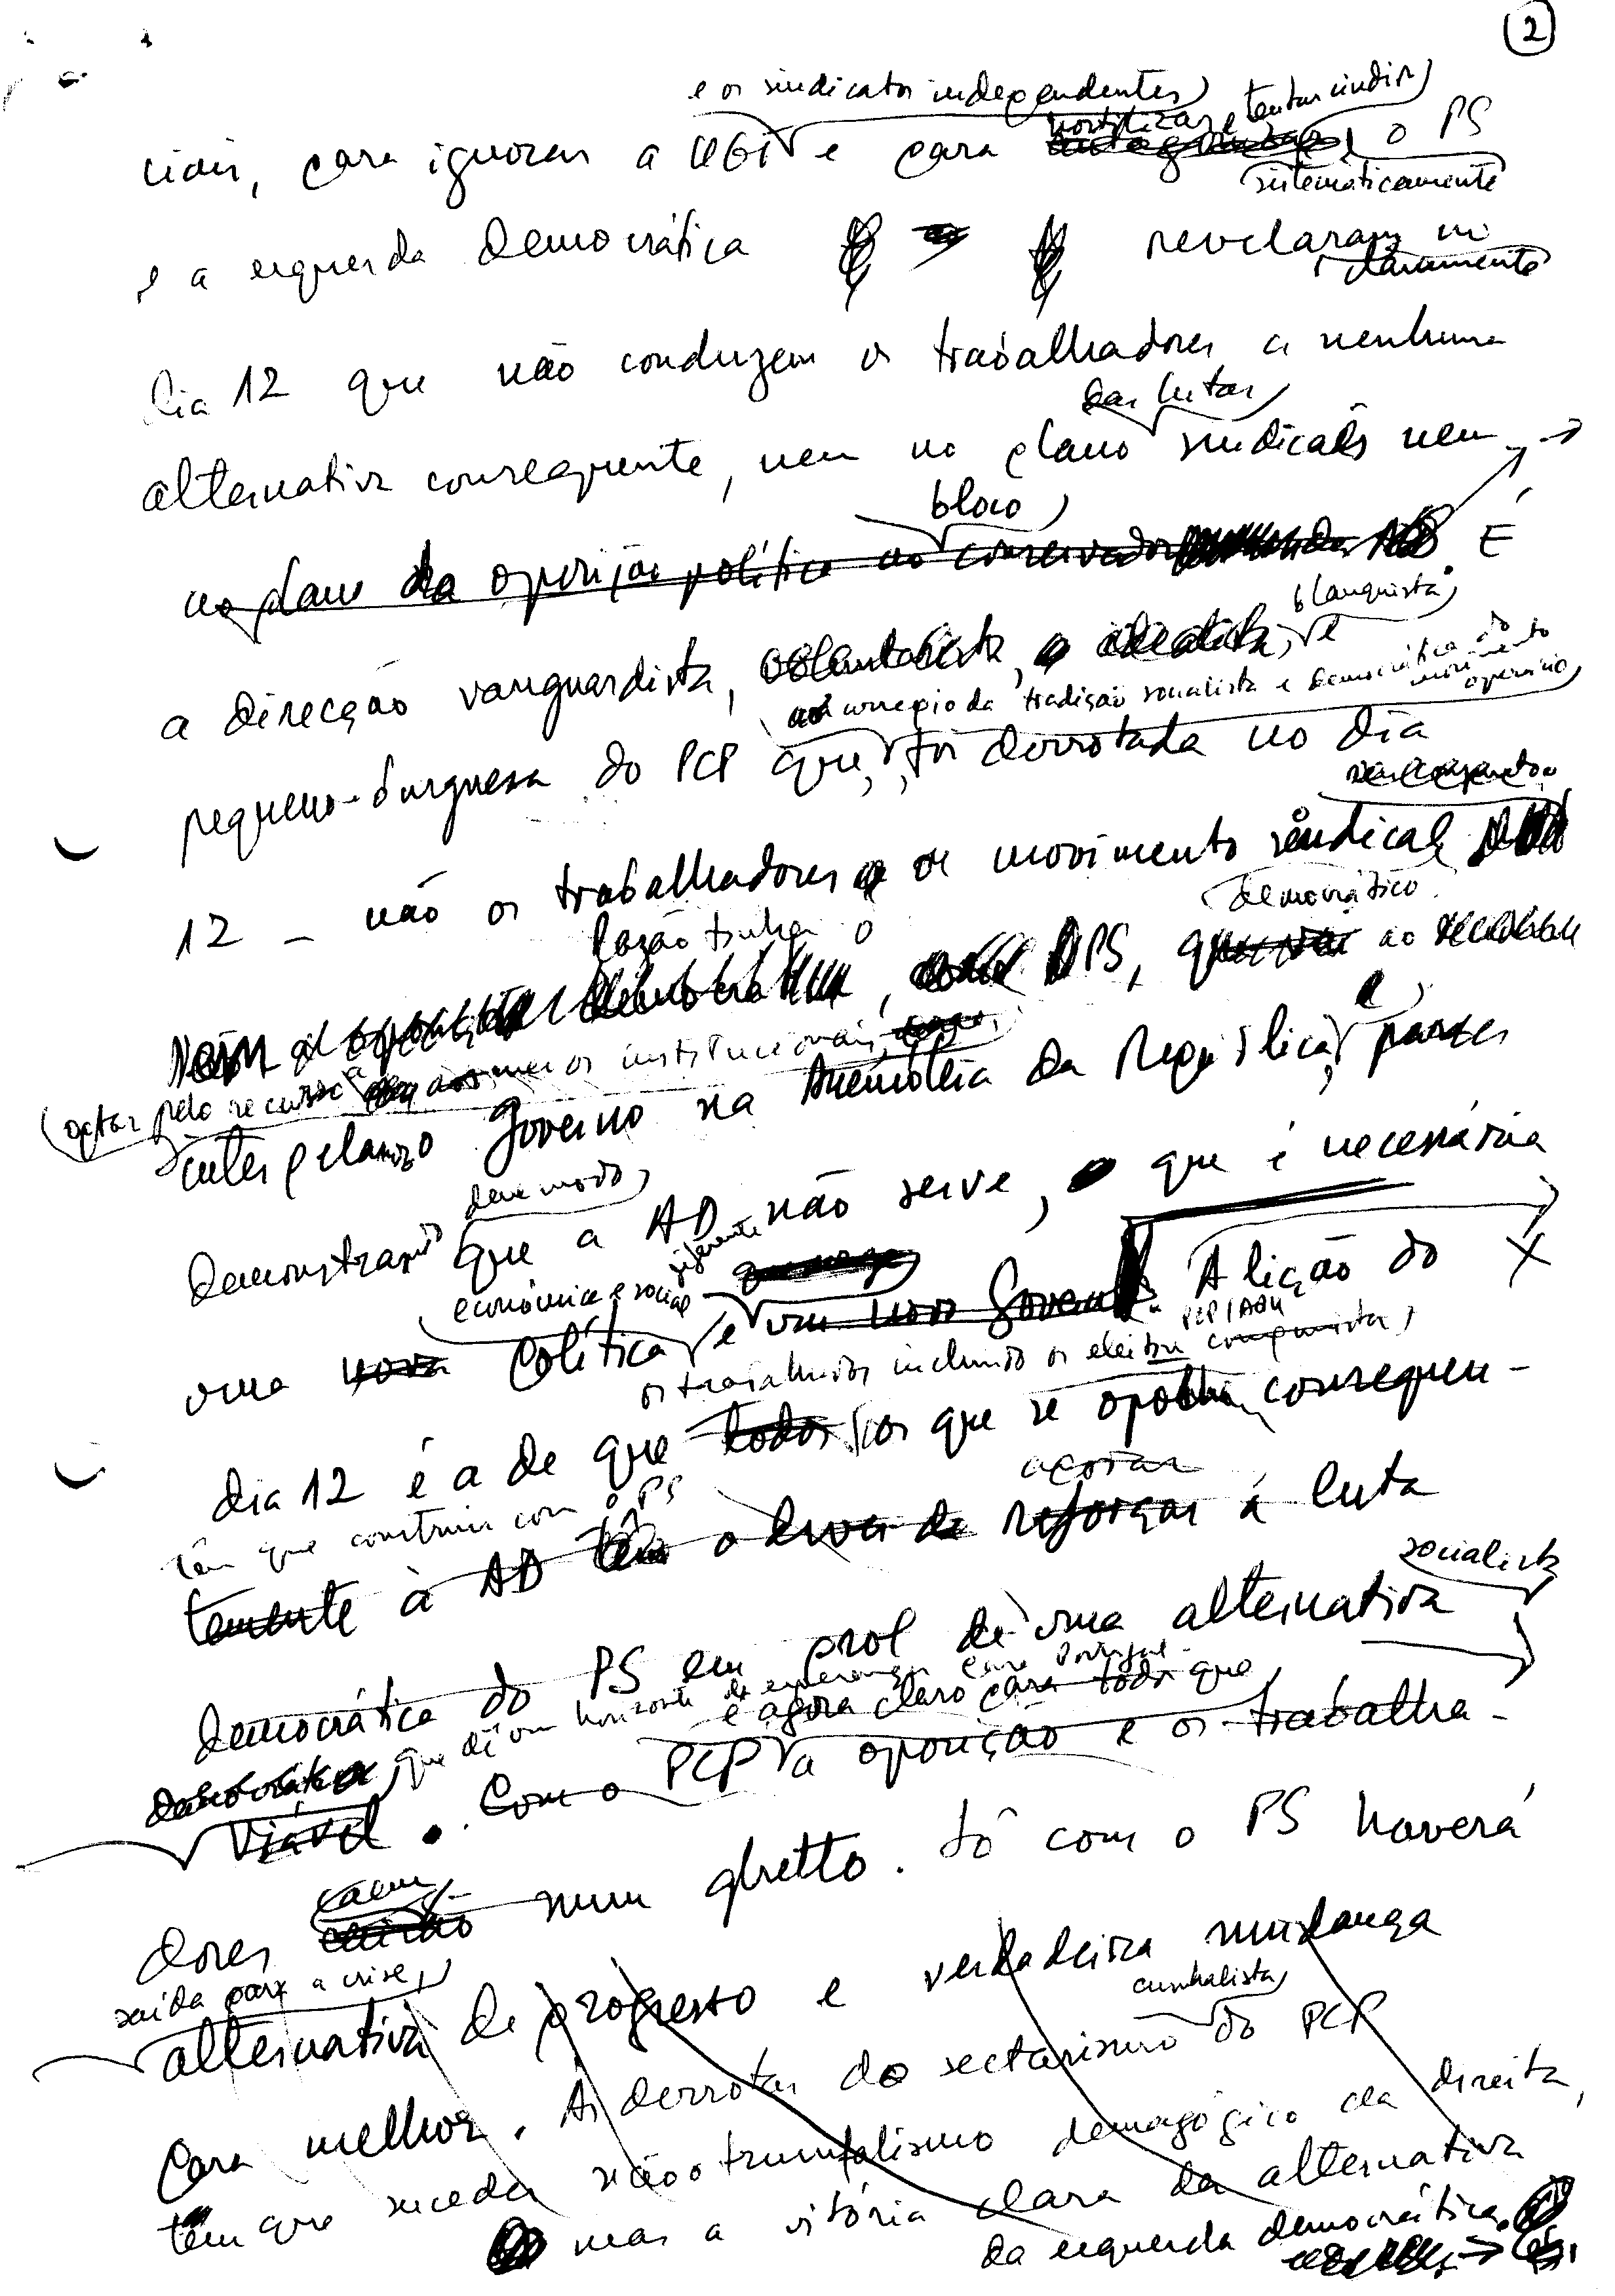 2
e os sindicatos independentes
hostilizar e tentar cindir
ciais, para ignorar a UGT e para o PS
sistematicamente
e a esquerda democrática revelaram no
claramente
dia 12 que não conduzem os trabalhadores a nenhuma
das lutas
alternativa consequente, nem no plano sindicais nem
bloco
no plano da oposição política ao conservador É
blanquista
a direcção vanguardista, e
ao arrepio da tradição socialista e democrática do movimento operário
pequeno-burguesa do PCP que, foi derrotada no dia
12 – não os trabalhadores e o movimento sindical
democrático
Razão tinha o
PS, que ao
optar pelo recurso a meios institucionais,
interpelando Governo na Assembleia da República, e
desse modo
demonstrando que a AD não serve, o que é necessária
económica e social diferente
uma nova política e um novo Governo. A lição do
PCP/APU
os trabalhadores incluindo os eleitores comunistas
dia 12 é a de que todos os que se opõem consequen-
apoiar
têm que construir com o PS
temente à AD têm o dever de reforçar a luta
socialista
democrática do PS em prol de uma alternativa
que dê um horizonte de esperança para Portugal.
é agora claro para todos que
viável. Com o PCP a oposição e os trabalha-
caem
dores num ghetto. Só com o PS haverá
saída para a crise,
alternativa de progresso e verdadeira mudança
cunhalista
para melhor. Às derrotas do sectarismo do PCP
têm que suceder não o triunfalismo demagógico da direita,
mas a vitória clara da alternativa
da esquerda democrática.